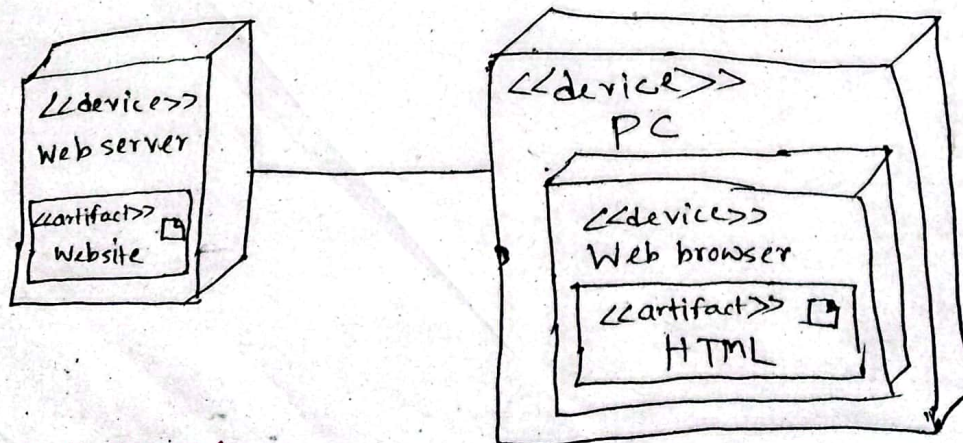 <<device>>
Web server
<<artifact>>
Website
<<device>>
PC
<<device>>
Web browser
<<artifact>>
HTML